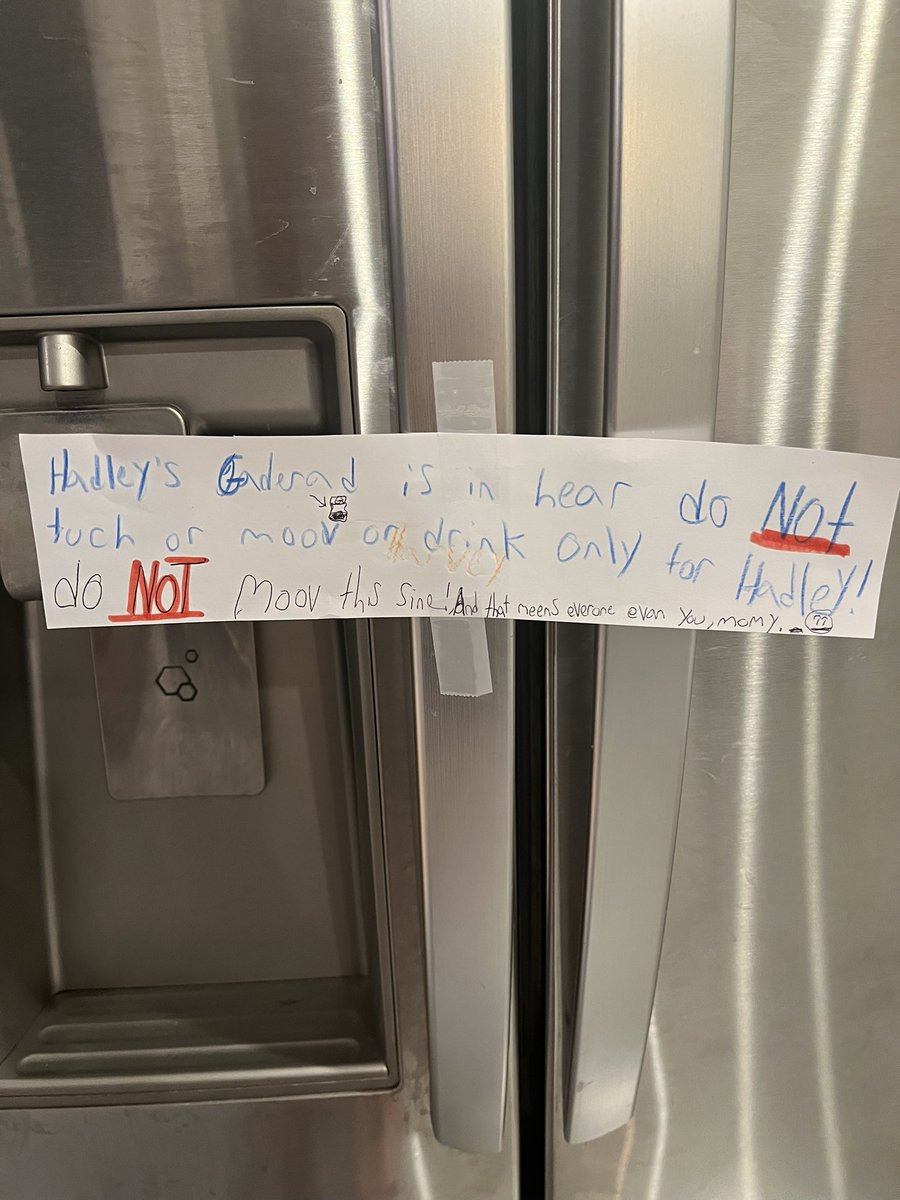 Hadley's Gaderad is in hear do NOt
tuch or moov or drink only for Hadley!
do NOT Moov this sine! And that meens everone evan you, momy.